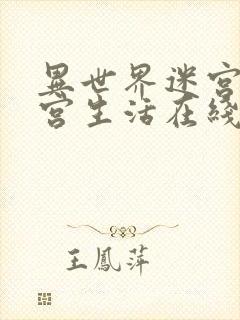 異世界迷宮
宮生活在綫
王鳳萍